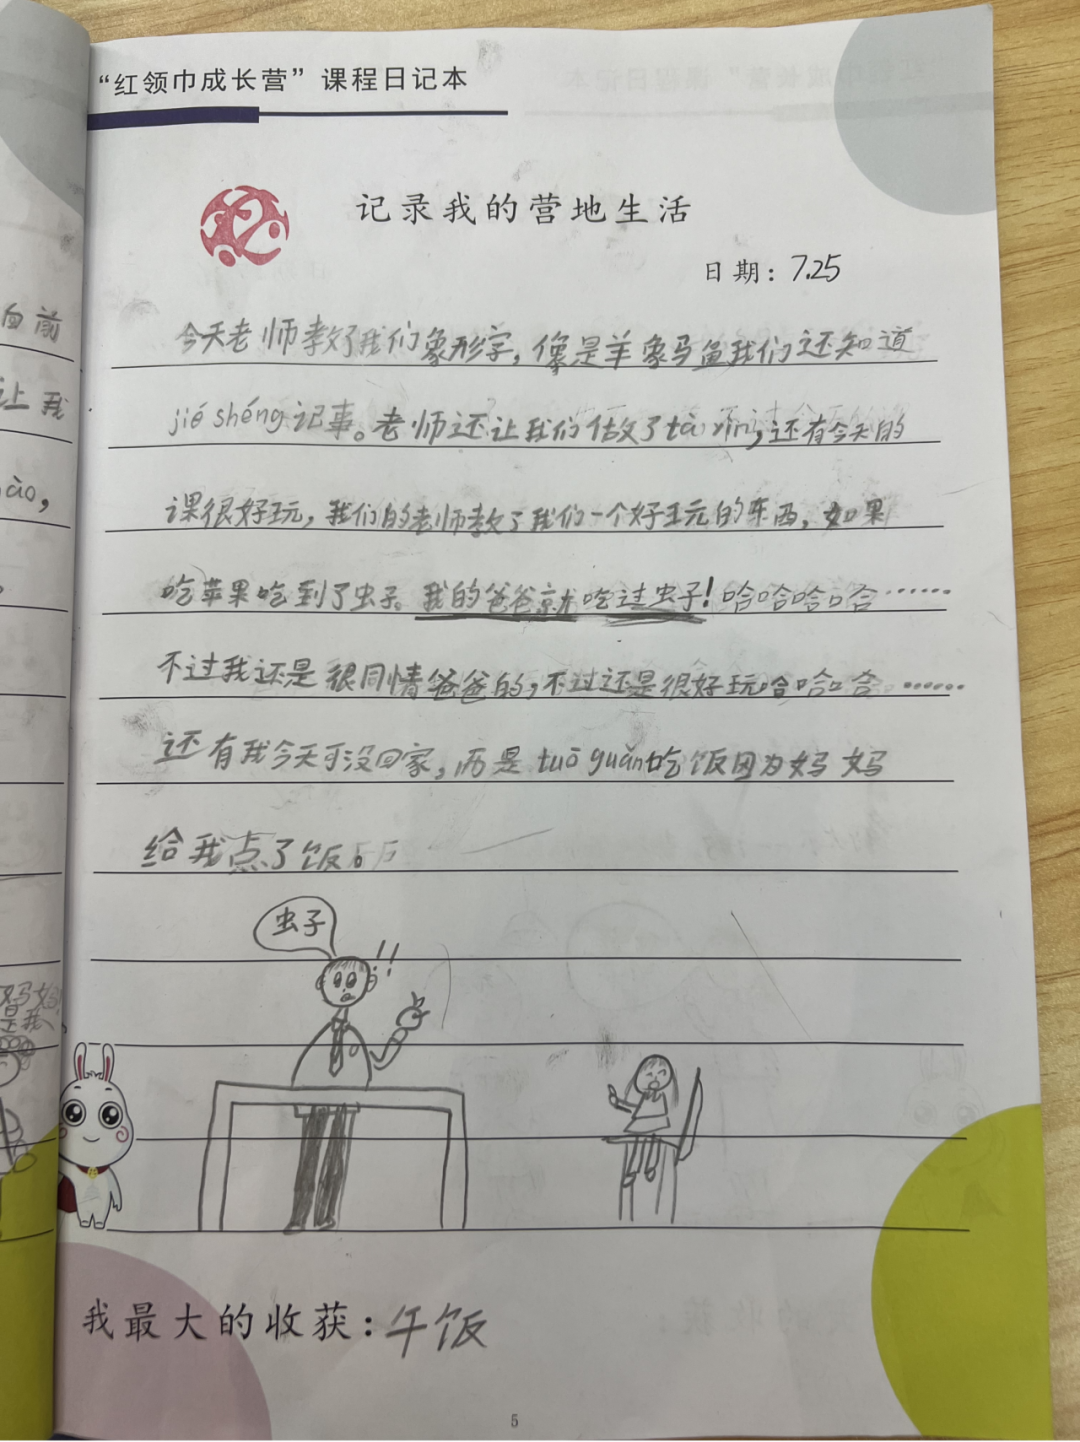 “红领巾成长营”课程日记本
记录我的营地生活
日期：7.25
今天老师教了我们象形字，像是羊象马鱼我们还知道
jié shéng记事。老师还让我们做了tà yìn，还有今天的
课很好玩，我们的老师教了我们一个好玩的东西，如果
吃苹果吃到了虫子。我的爸爸就吃过虫子！哈哈哈哈……
不过我还是很同情爸爸的，不过还是很好玩哈哈哈……
还有我今天可没回家，而是tuō guǎn吃饭因为妈妈
给我点了饭。
虫子
!!
我最大的收获：午饭
5
白前
让我
ào，